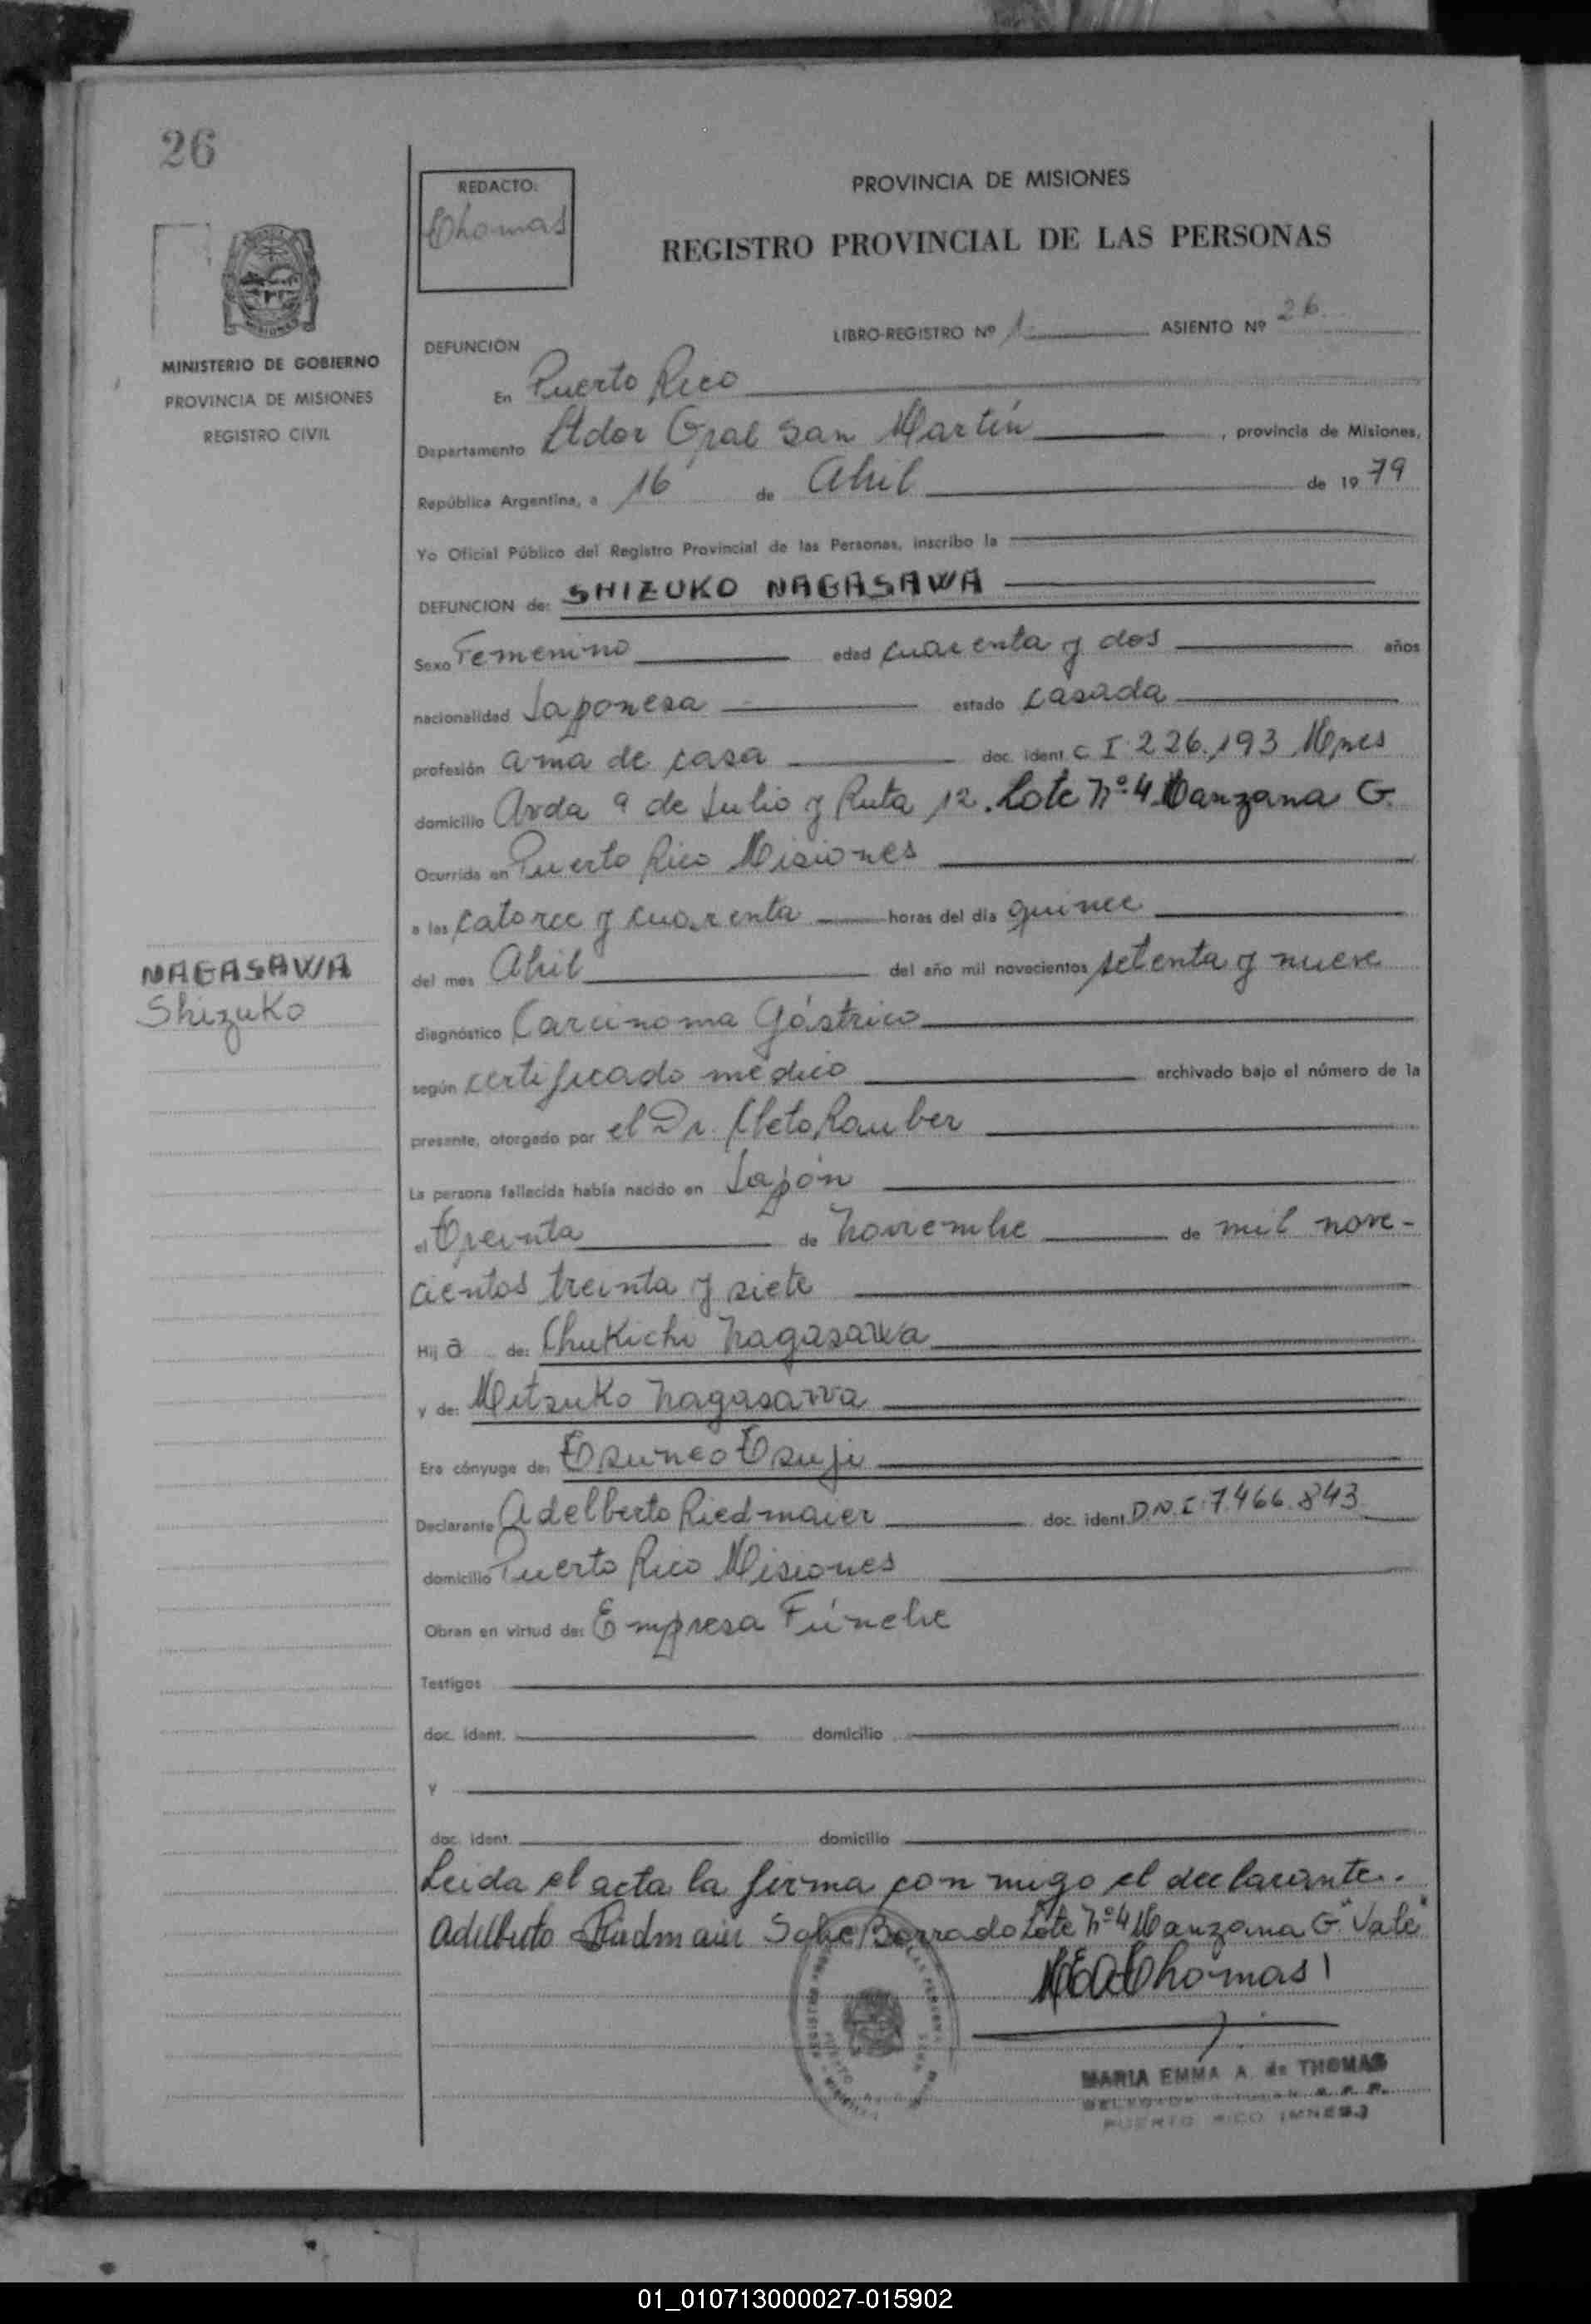 26
REDACTO:
Thomas
PROVINCIA DE MISIONES
REGISTRO PROVINCIAL DE LAS PERSONAS
MINISTERIO DE GOBIERNO
PROVINCIA DE MISIONES
REGISTRO CIVIL
LIBRO-REGISTRO Nº 1 ASIENTO Nº 26
DEFUNCION
En Puerto Rico
Departamento Ldor Gral San Martín, provincia de Misiones,
República Argentina, a 16 de Abril de 1979
Yo Oficial Público del Registro Provincial de las Personas, inscribo la
DEFUNCION de: SHIZUKO NAGASAWA
Sexo Femenino edad cuarenta y dos años
nacionalidad Japonesa estado casada
profesión ama de casa doc. ident. C I 226.193 Mnes
domicilio Avda 9 de Julio y Ruta 12. Lote Nº 4 Manzana G.
Ocurrida en Puerto Rico Misiones
a las catorce y cuarenta horas del día quince
NAGASAWA
Shizuko
del mes Abril del año mil novecientos setenta y nueve
diagnóstico Carcinoma Gástrico
según certificado médico archivado bajo el número de la
presente, otorgado por el Dr. Cleto Rauber
La persona fallecida había nacido en Japón
el Treinta de Noviembre de mil nove-
cientos treinta y siete
Hij a de: Chukichi Nagasawa
y de: Mitzuko Nagasawa
Era cónyuge de: Tsuneo Tsuji
Declarante Adelberto Riedmaier doc. ident. D.N.I 7.466.843
domicilio Puerto Rico Misiones
Obran en virtud de: Empresa Fúnebre
Testigos
doc. ident. domicilio
y
doc. ident. domicilio
Leida el acta la firma con migo el declarante.
Adelberto Riedmaier Sobre Borrado Lote Nº 4 Manzana G "Vale"
MEAThomas
MARIA EMMA A. de THOMAS
PUERTO RICO (MNES.)
01_010713000027-015902